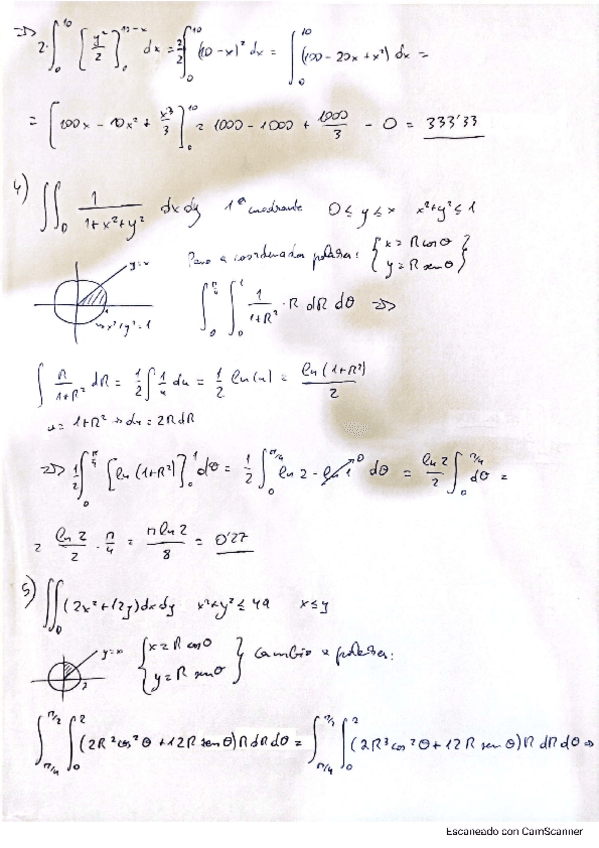 =>> 2·∫₀¹⁰ [y²/2]₀^(10-x) dx = 2/2 ∫₀¹⁰ (10-x)² dx = ∫₀¹⁰ (100 - 20x + x²) dx =
= [100x - 10x² + x³/3]₀¹⁰ = 1000 - 1000 + 1000/3 - 0 = 333'33
4) ∬_D 1/(1+x²+y²) dx dy 1er cuadrante 0 ≤ y ≤ x x²+y² ≤ 1
Paso a coordenadas polares: { x = R cos θ
y = R sen θ }
y=x
x²+y²=1
∫₀^(π/4) ∫₀¹ 1/(1+R²) · R dR dθ =>>
∫ R/(1+R²) dR = 1/2 ∫ 1/u du = 1/2 ln(u) = ln(1+R²)/2
u = 1+R² → du = 2R dR
=>> 1/2 ∫₀^(π/4) [ln(1+R²)]₀¹ dθ = 1/2 ∫₀^(π/4) ln 2 - ln 1 dθ = ln 2/2 ∫₀^(π/4) dθ =
= ln 2/2 · π/4 = π ln 2/8 = 0'27
5) ∬_D (2x²+12y) dx dy x²+y² ≤ 4 x ≤ y
y=x
2
{ x = R cos θ
y = R sen θ } Cambio a polares:
∫_(π/4)^(π/2) ∫₀² (2R² cos² θ + 12R sen θ) R dR dθ = ∫_(π/4)^(π/2) ∫₀² (2R³ cos² θ + 12 R sen θ) R dR dθ =>
Escaneado con CamScanner